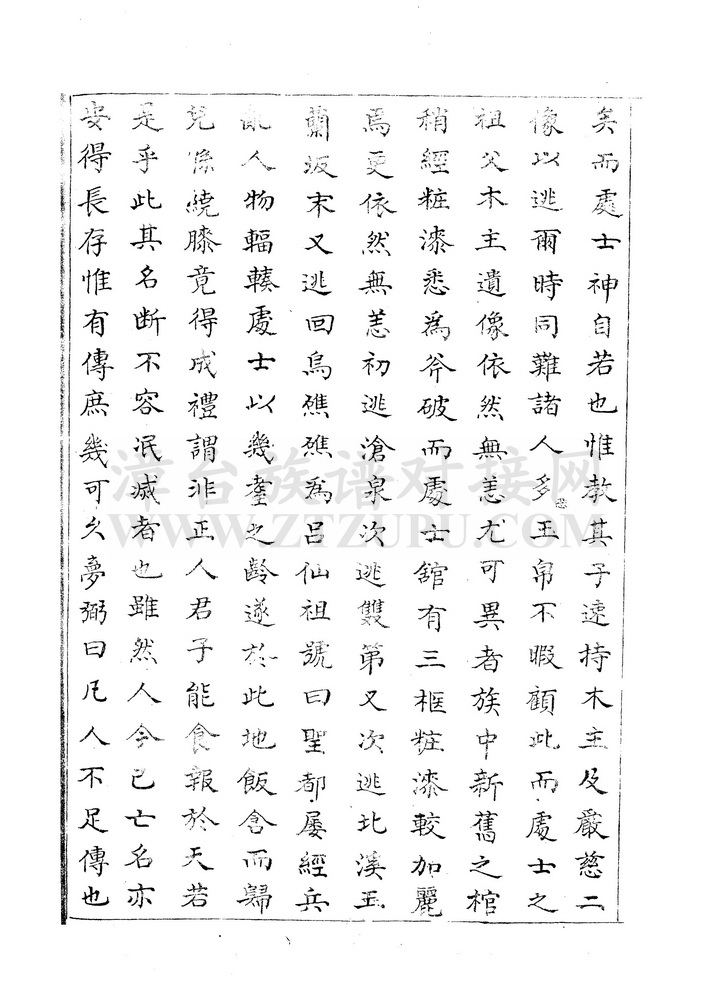 矣而處士神自若也惟教其子速持木主及嚴慈二
像以逃爾時同難諸人多玉帛不暇顧此而處士之
祖父木主遺像依然無恙尤可異者族中新舊之棺
稍經粧漆悉為斧破而處士舘有三柩粧漆較加麗
焉更依然無恙初逃滄泉次逃雙第又次逃北溪玉
蘭坂末又逃回烏礁礁為呂仙祖號曰聖都屡經兵
亂人物輻輳處士以幾耋之齡遂於此地飯含而歸
兒孫繞膝竟得成禮謂非正人君子能食報於天若
是乎此其名断不容泯滅者也雖然人今已亡名亦
安得長存惟有傳庶幾可久夢弼曰凡人不足傳也
津台族谱对接网
WWW.ZTZUPU.COM